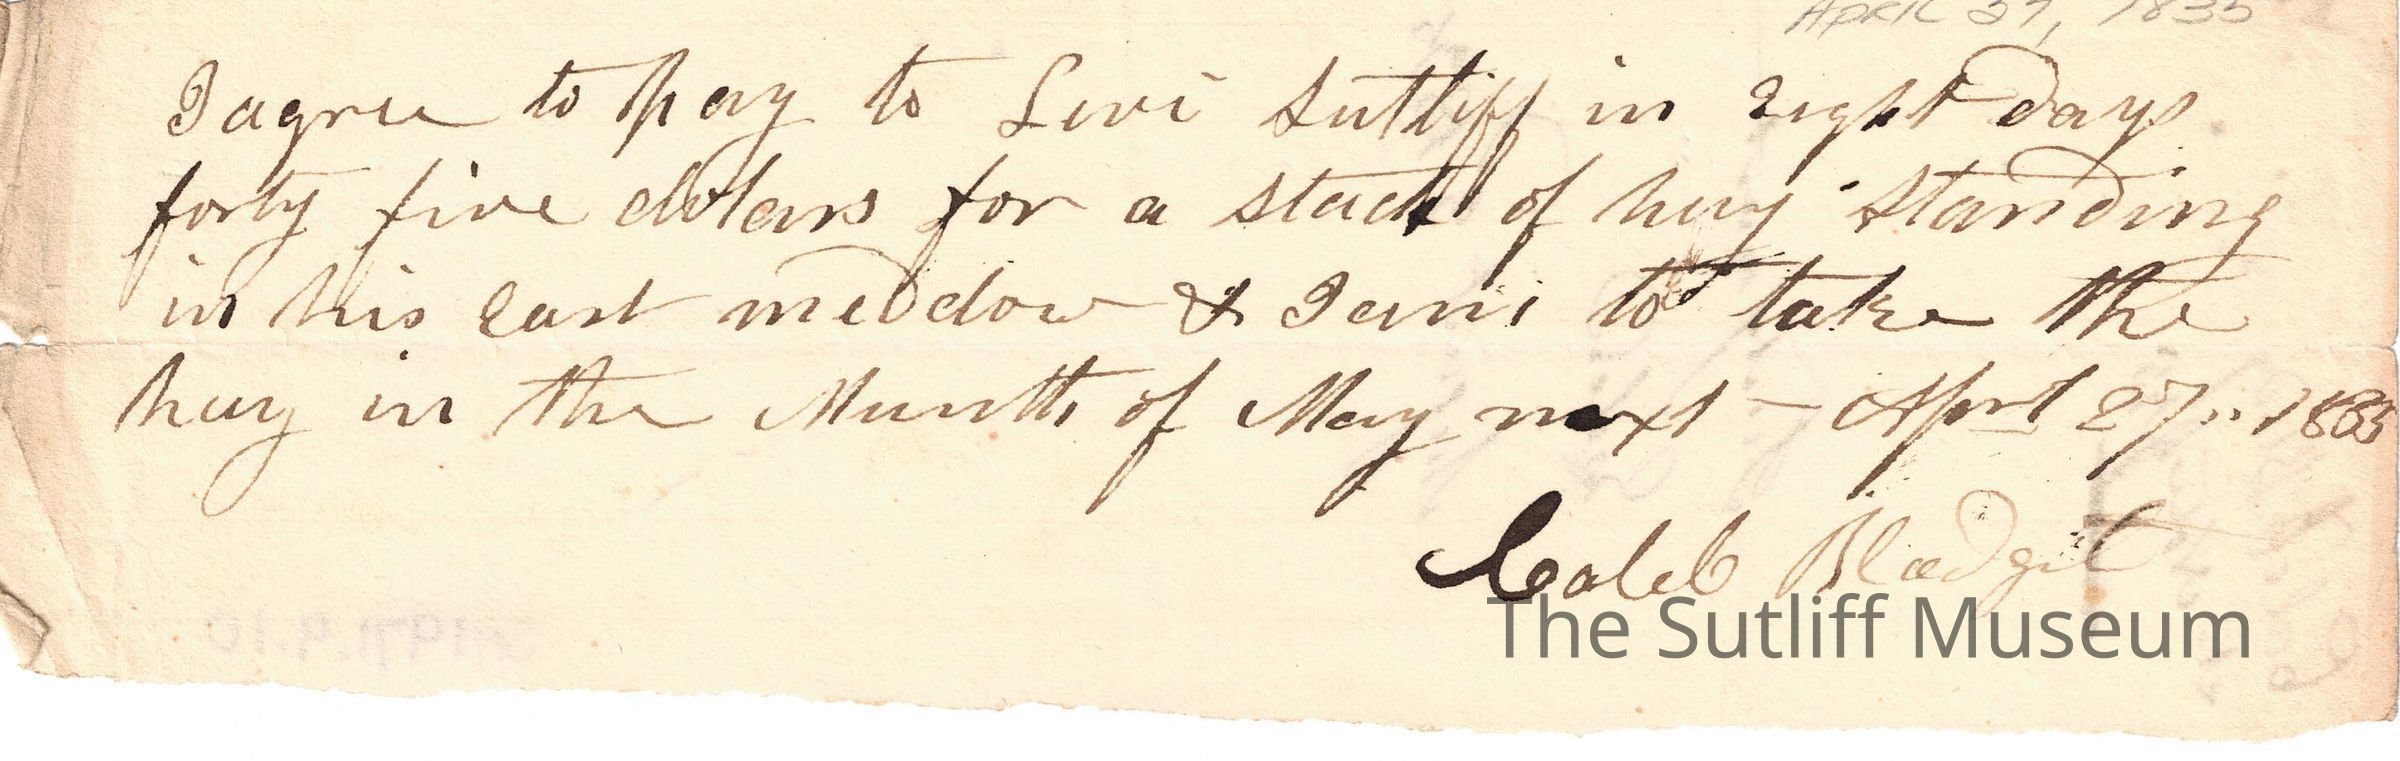 APRIL 27, 1835
I agree to pay to Levi Sutliff in eight days
forty five dolars for a stack of hay standing
in his east meddow & I am to take the
hay in the Munth of May next - April 27" 1835
Caleb Blodgit
The Sutliff Museum